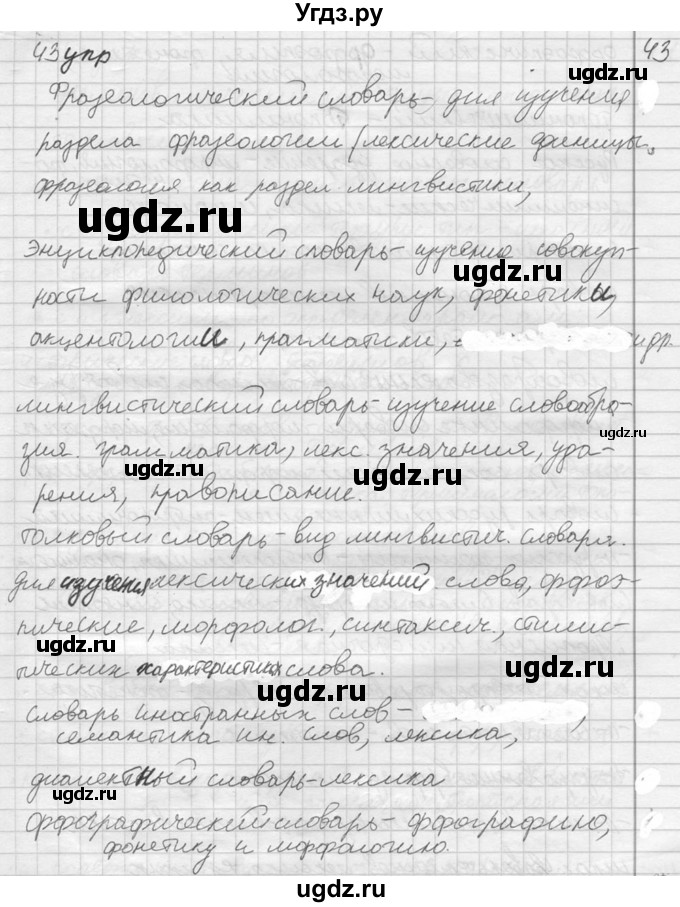 Угдз.ру
43упр
43
Фразеологический словарь - для изучения
раздела фразеологии (лексические единицы,
фразеология как раздел лингвистики,
ugdz.ru
ugdz.ru
энциклопедический словарь - изучение совокуп-
ugdz.ru
ности филологических наук, фонетики,
акцентологии, прагматики, и др.
ugdz.ru
лингвистический словарь - изучение словообра-
ugdz.ru
зия. грамматика, лекс. значения, уда-
ugdz.ru
рения, правописание.
толковый словарь - вид лингвистич. словаря.
ugdz.ru
для изучения лексических значений слова, орфоэ-
пические, морфолог., синтаксич., стилис-
ugdz.ru
тических характеристик слова.
ugdz.ru
ugdz.ru
словарь иностранных слов -
семантика ин. слов, лексика,
диалектный словарь - лексика
ugdz.ru
ugdz.ru
Орфографический словарь - орфографию,
фонетику и морфологию.
ugdz.ru
ugdz.ru